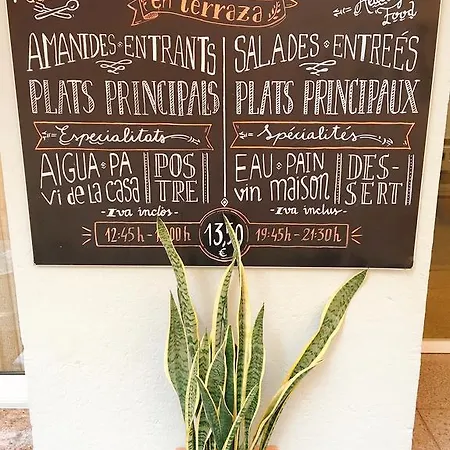 en terraza
Healthy
Food
AMANIDES · ENTRANTS
PLATS PRINCIPALS
Especialitats
AIGUA · PA
vi de la casa
POS
TRE
- Iva inclòs -
SALADES · ENTREÉS
PLATS PRINCIPAUX
Spécialités
EAU · PAIN
vin maison
DES-
SERT
- Iva inclus -
12:45h -
00h
13,50
€
19:45h - 21:30h